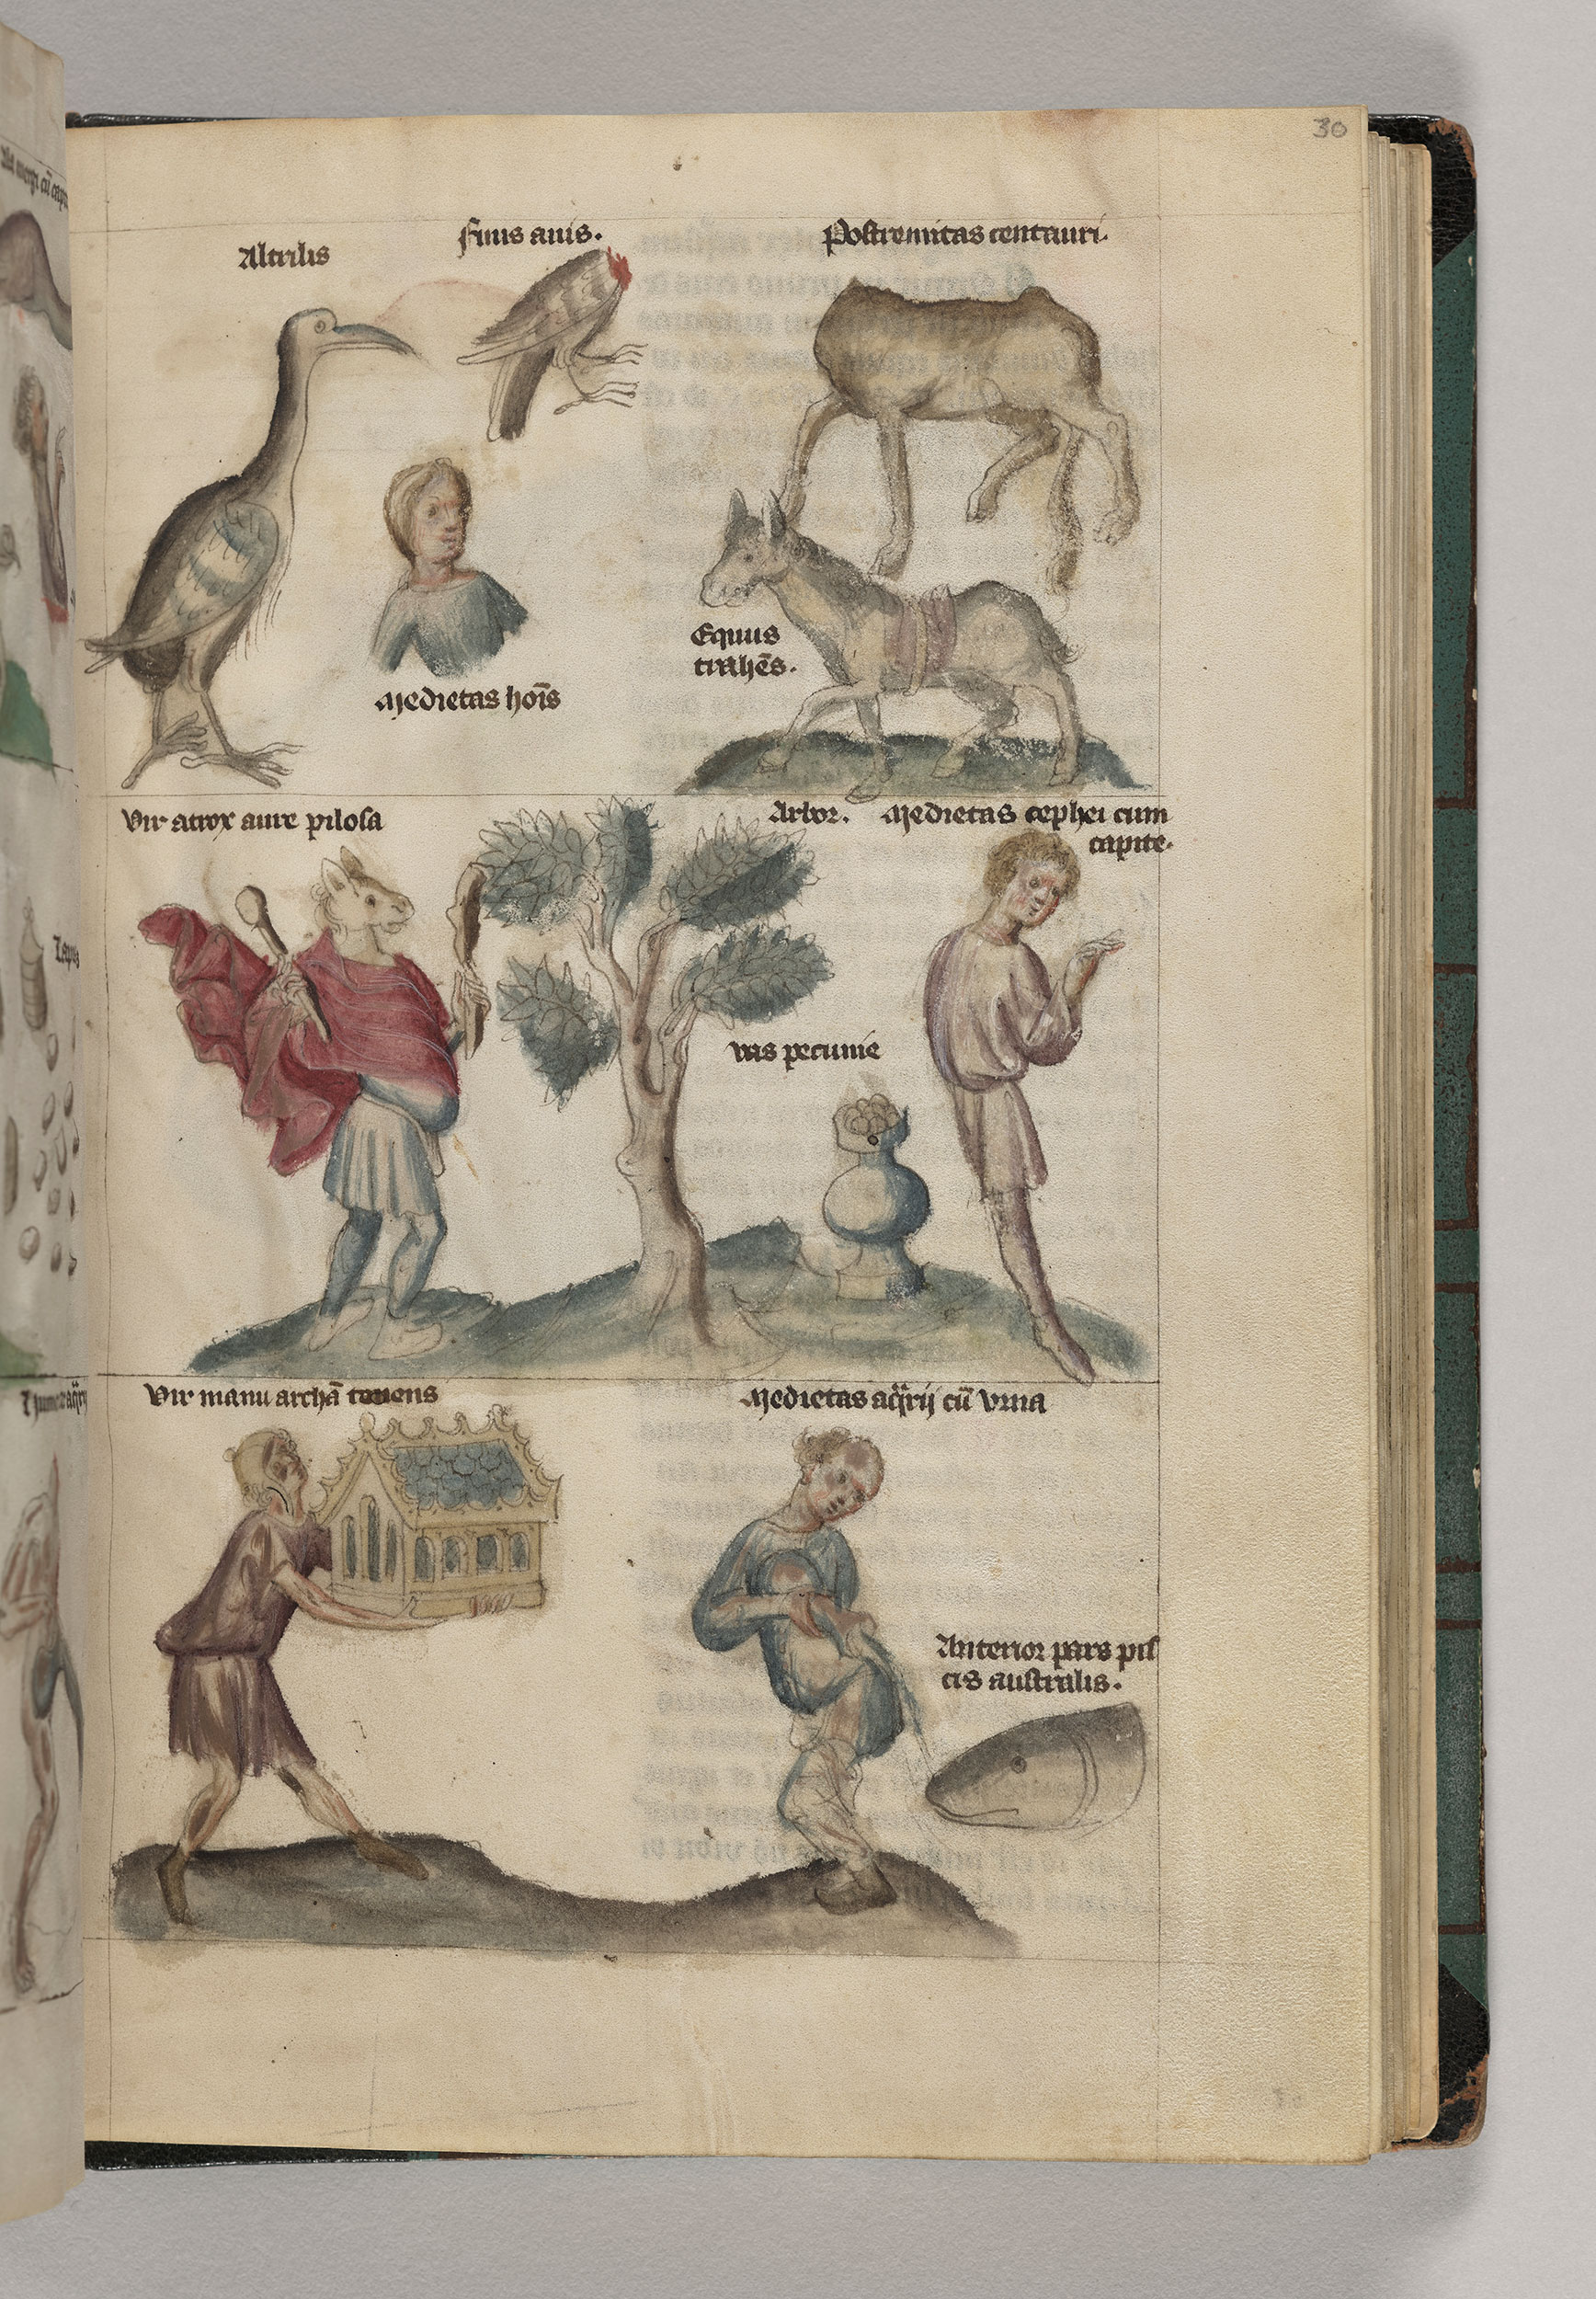 30
Altilis
finis auis.
Postremitas centauri.
Equus
trahēs.
Medietas hoīs
Vir atrox aure pilosa
Arbor.
Medietas cephei cum
capite.
vas pecunie
Vir manu archā tenens
Medietas aq̄rij cū Vrna
Anterior pars pis
cis australis.